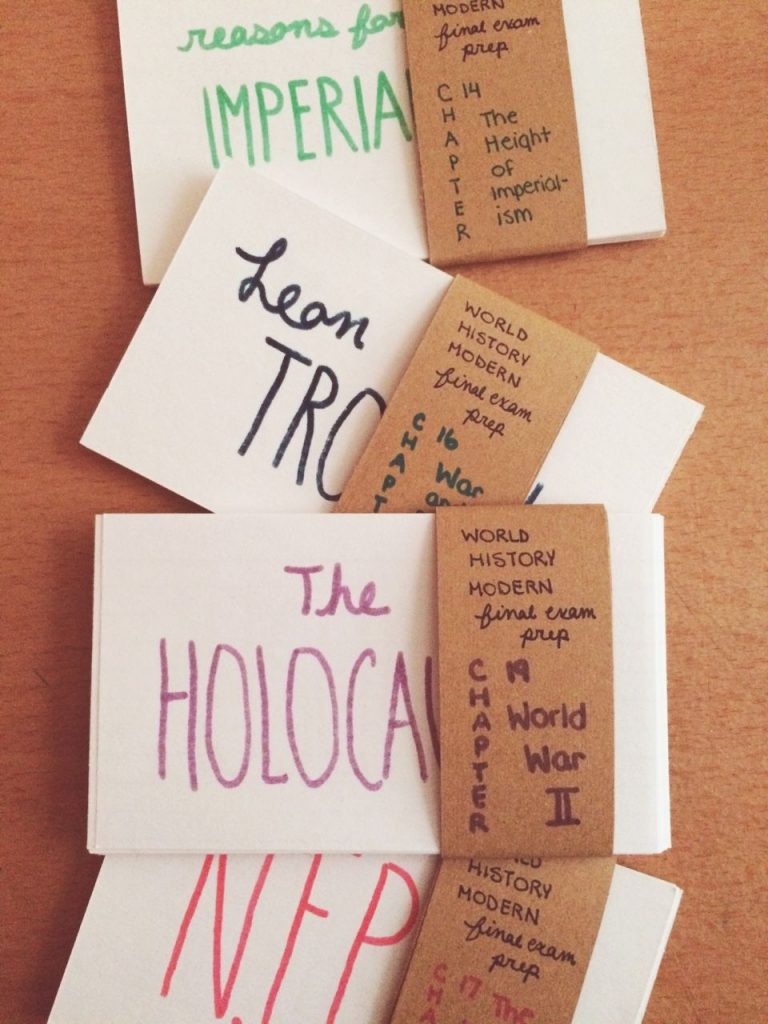 reasons for
IMPERIA
MODERN
final exam
prep
CHAPTER 14
The
Height
of
Imperial-
ism
Leon
TRO
WORLD
HISTORY
MODERN
final exam
prep
CHAPT 16
War
an
The
HOLOCAU
WORLD
HISTORY
MODERN
final exam
prep
CHAPTER 19
World
War
II
N.E.P
HISTORY
MODERN
final exam
prep
CHA 17 The